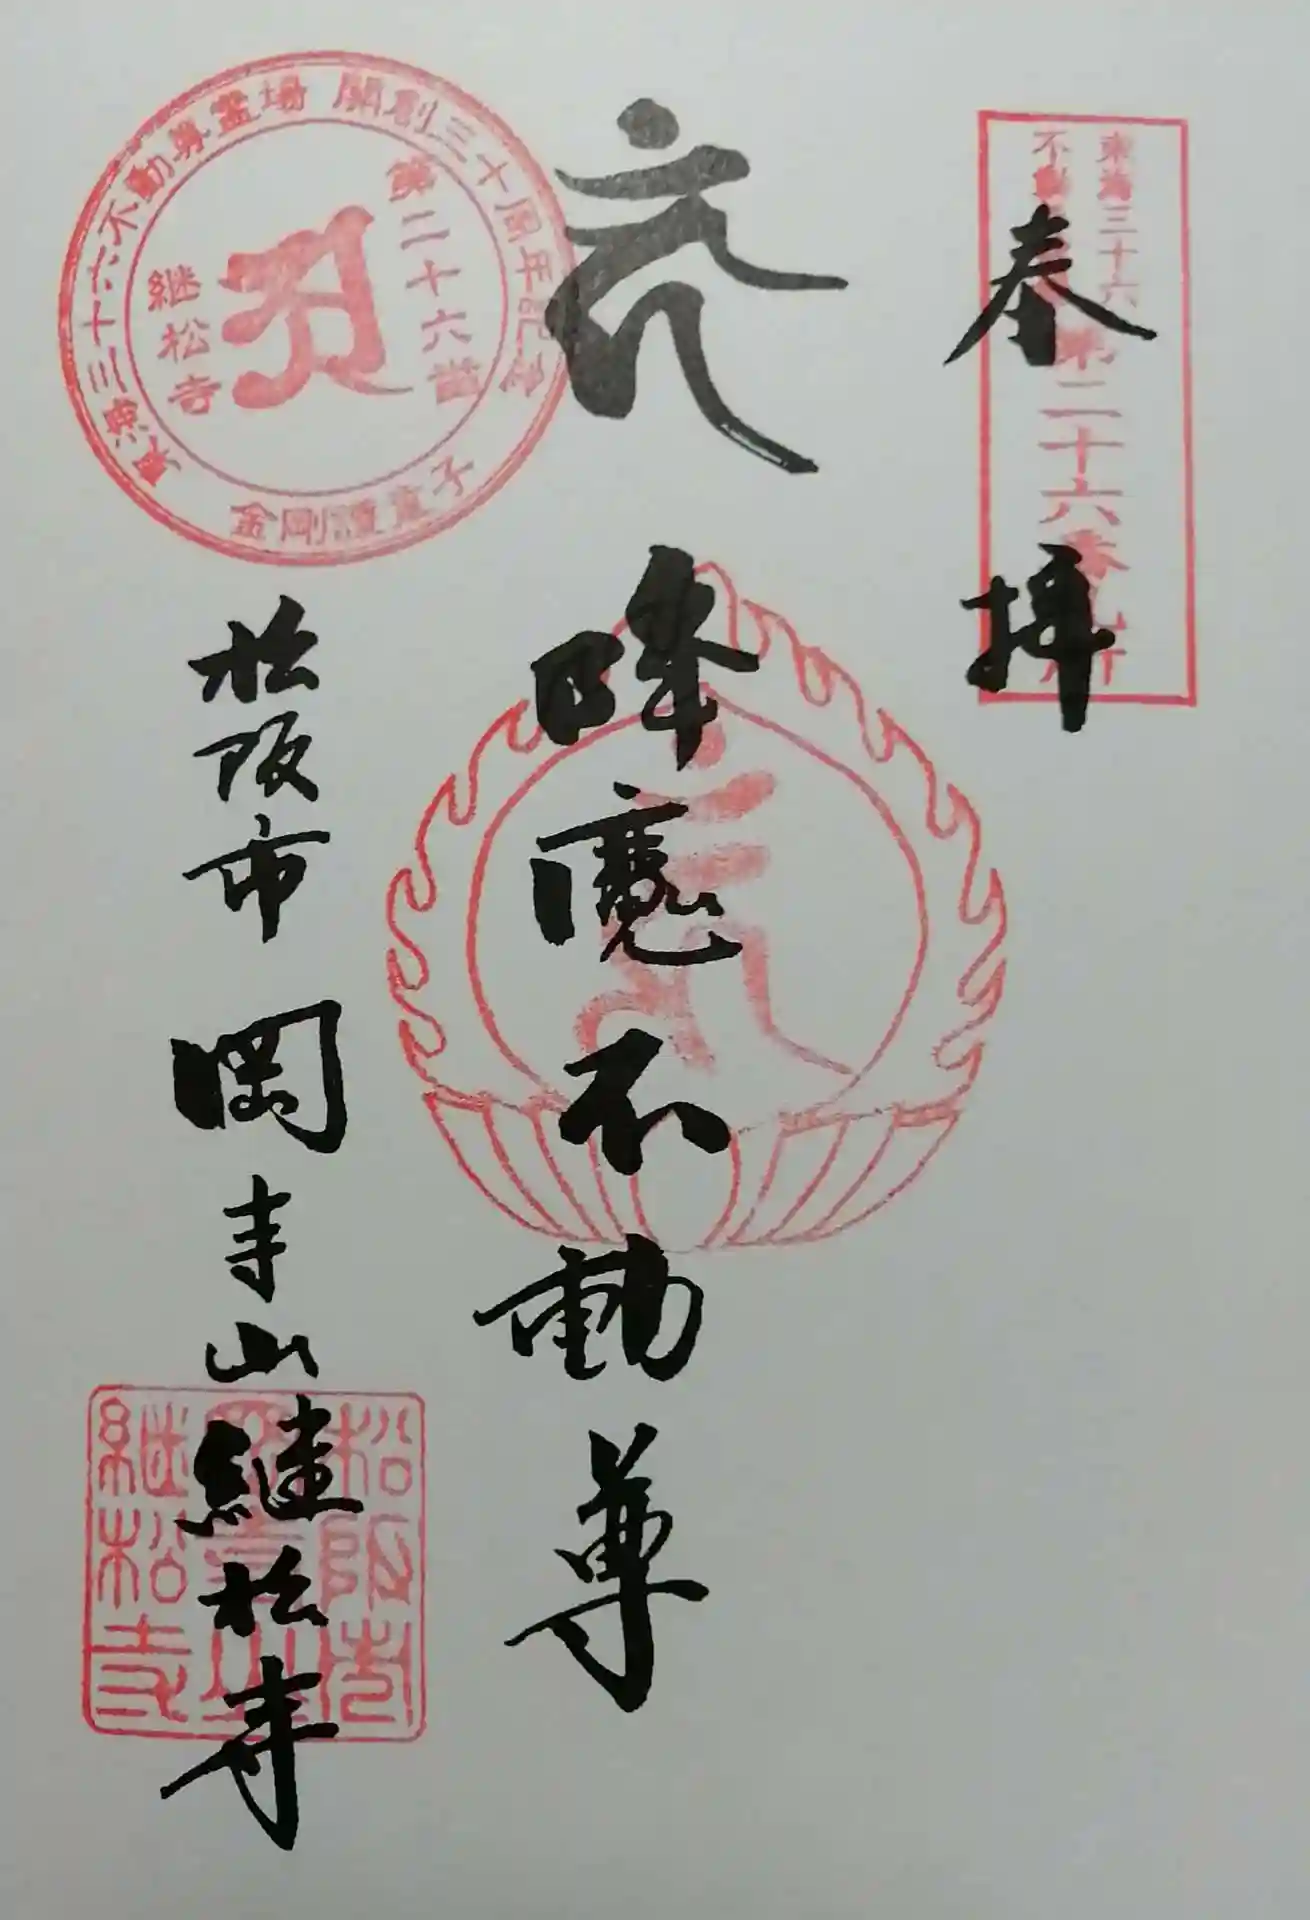 奉拝
東海三十六
不動
第二十六番札所
降魔不動尊
松阪市 岡寺山継松寺
東海三十六不動尊霊場 開創三十周年記念
第二十六番
継松寺
金剛護童子
松阪市
継松寺